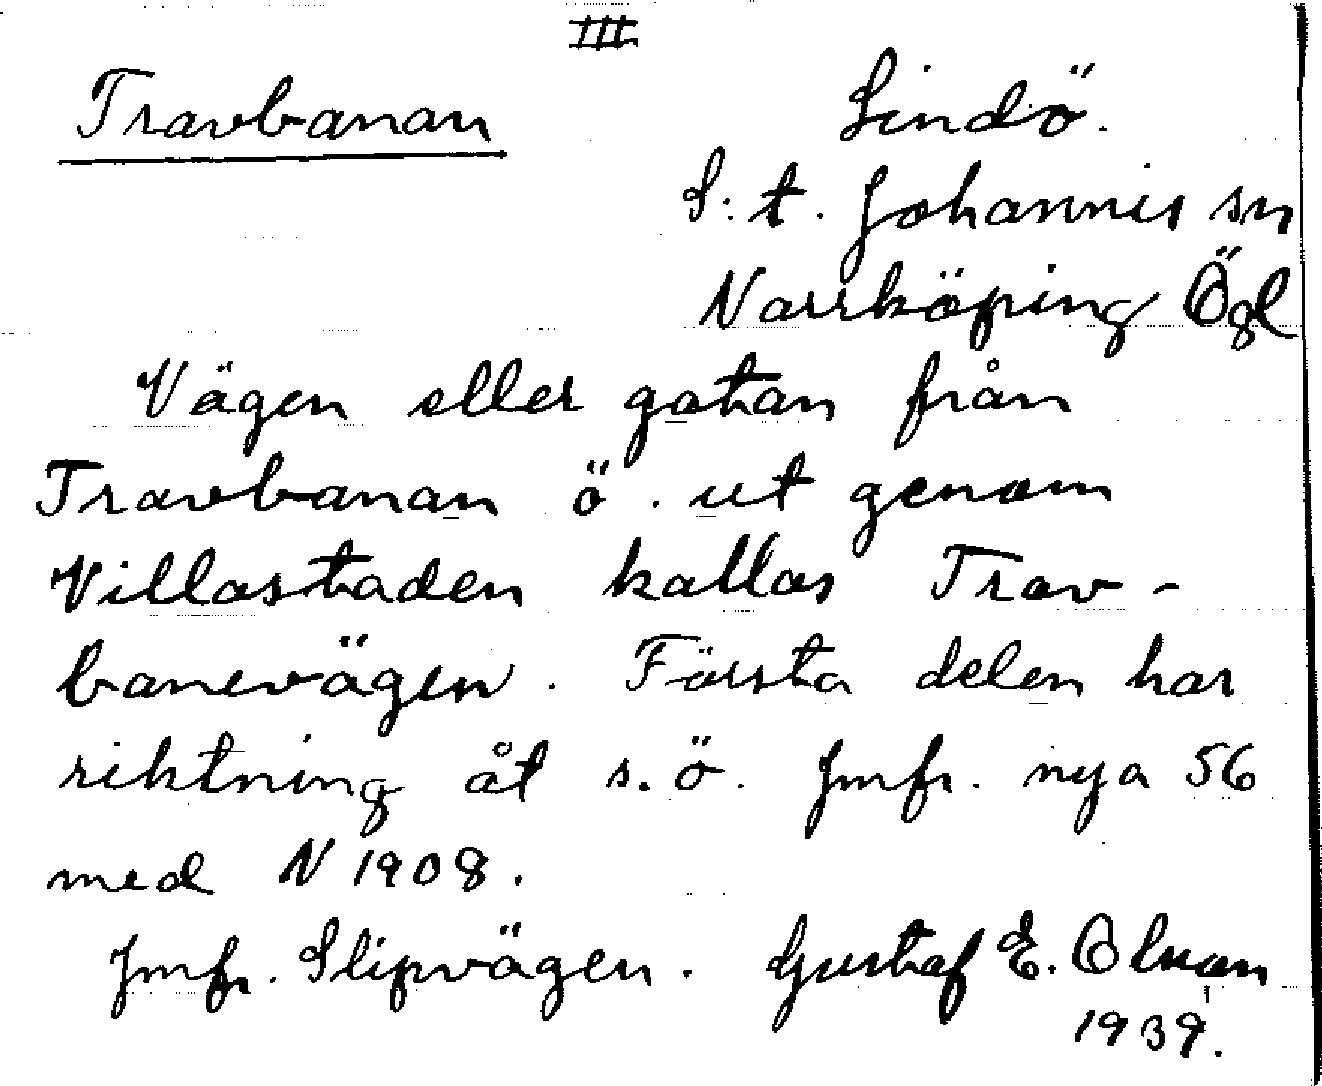 III
Travbanan
Lindö.
S:t. Johannis sn
Norrköping Ögl
Vägen eller gatan från
Travbanan ö. ut genom
Villastaden kallas Trav-
banevägen. Första delen har
riktning åt s.ö. Jmfr. nya 56
med N 1908.
Jmfr. Slipvägen. Gustaf E. Olson
1939.